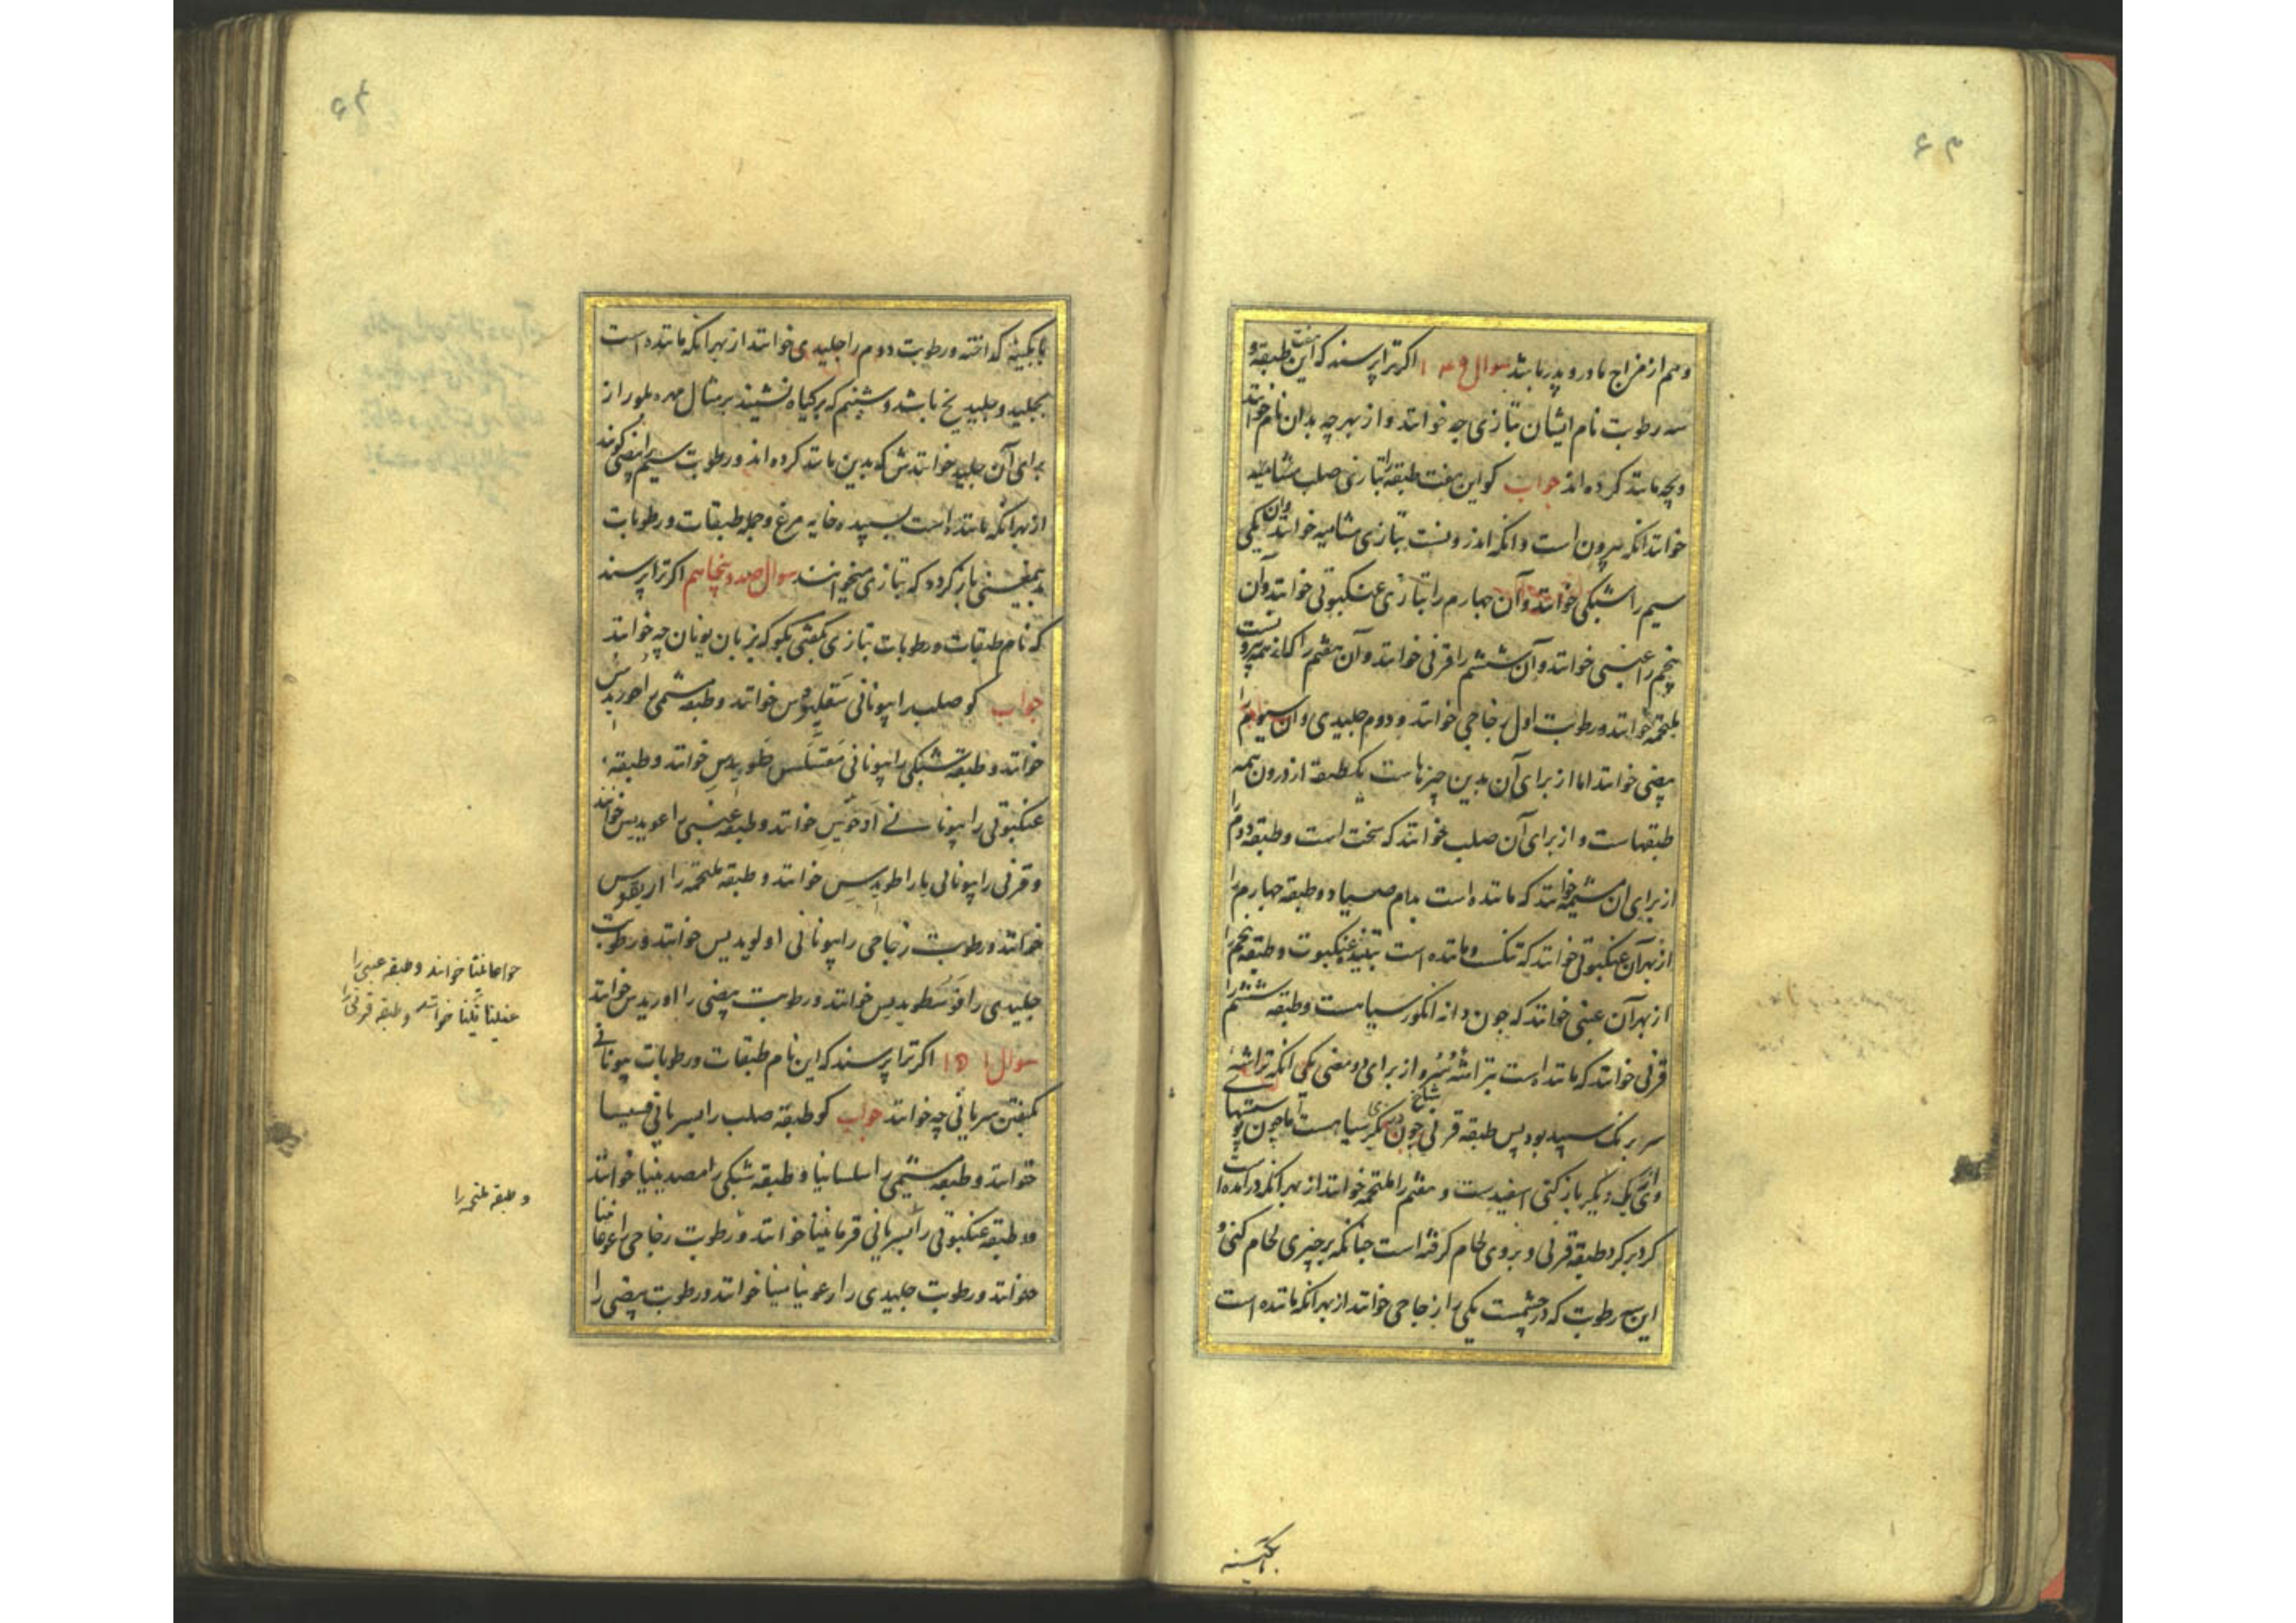 و هم از مزاج مادر و پدر باشد سوال ۱۴۹ اکر ترا پرسند که این هفت طبقه و
سه رطوبت نام ایشان بتازی چه خوانند و از بهر چه بدان نام خوانند
و بچه مانند کرده اند جواب کو این هفت طبقه را بتازی صلب مشامیه
خوانند انکه بیرون است و انکه اندرونست بتازی مشامیه خوانند و ان یکی
سیم را شبکی خوانند و آن چهارم را بتازی عنکبوتی خوانند و آن
پنجم را عنبی خوانند و آن ششم را قرنی خوانند و آن هفتم را کان همه بیرونست
ملتحمه خوانند و رطوبت اول زجاجی خوانند و دوم جلیدی و ان سیوم را
بیضی خوانند اما از برای آن بدین چیزهاست یک طبقه از درون همه
طبقهاست و از برای آن صلب خوانند که سخت است و طبقه دوم را
از برای ان مشیمه خوانند که مانده است بدام صیاد و طبقه چهارم را
از بهر آن عنکبوتی خوانند که تنکست و مانده است بتنیده عنکبوت و طبقه پنجم را
از بهر آن عنبی خوانند که چون دانه انکور سیاهست و طبقه ششم را
قرنی خوانند که مانند است بتراشه سُرُو از برای دو معنی یکی انکه تراشهٔ
سر برنک سپید بود پس طبقه قرنی چون شاخ سیاهست اما چون
از یک دیکر باز کنی اسفیدست و هفتم را ملتحمه خوانند از بهر انکه در آمده است
کرد بر کرد طبقه قرنی و بر وی لحام کرفته است چنانکه بر چیزی لحام کنی و
این سه رطوبت که در چشمست یکی را زجاجی خوانند از بهر انکه مانده است
بابکینه
بابکینه کداخته و رطوبت دوم را جلیدی خوانند از بهر انکه مانده است
بجلید و جلید یخ باشد و شبنم که بر کیاه نشیند بر مثال مهره بلور از
برای آن جلید خوانندش که بدین مانند کرده اند و رطوبت سیم را بیضی کویند
از بهر انکه مانند است بسپیده خایه مرغ و جمله طبقات و رطوبات
بدین معنی باز کردد که بتازی میخوانند سوال صد و پنجاهم اکر ترا پرسند
که نام طبقات و رطوبات بتازی بکفتی بکو که بزبان یونان چه خوانند
جواب کو صلب را بیونانی سَقلیوس خوانند و طبقه مشیمی را خوریدس
خوانند و طبقه شبکی را بیونانی مَقسَلَس طَویدِس خوانند و طبقه
عنکبوتی را بیونانی اَدخَیِس خوانند و طبقه عنبی را عویدیس خوانند
و قرنی را بیونانی باراطویدیس خوانند و طبقه ملتحمه را اریقوس
خوانند و رطوبت زجاجی را بیونانی اولویدیس خوانند و رطوبت
جلیدی را قوسطویدیس خوانند و رطوبت بیضی را اورَیدیس خوانند
سوال ۱۵۱ اکر ترا پرسند که این نام طبقات و رطوبات بیونانی
بکفتی بسریانی چه خوانند جواب کو طبقه صلب را بسریانی قسیسا
خوانند و طبقه مشیمی را سلسانیا و طبقه شبکی را مصدینیا خوانند
و طبقه عنکبوتی را بسریانی قرماغیثا خوانند و رطوبت زجاجی را
خوانند و رطوبت جلیدی را ارعونیا مینا خوانند و رطوبت بیضی را
خوانند و طبقه عنبی را
خوانند و طبقه قرنی را
و طبقه ملتحمه را